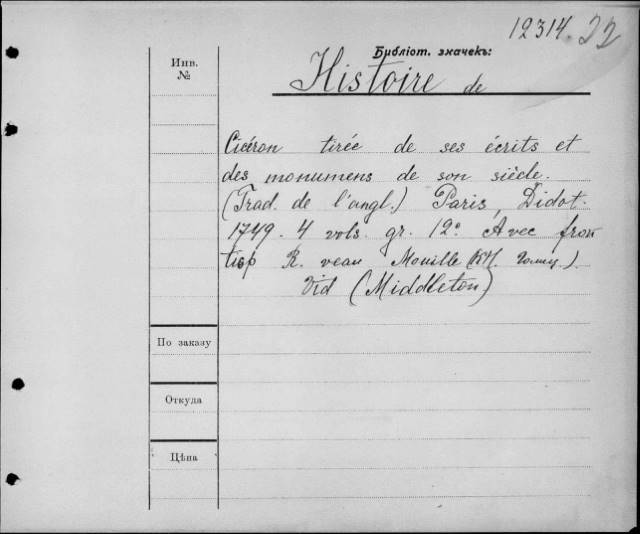 12314. 22
Инв.
№
Библіот. значекъ:
Histoire de
Cicéron tirée de ses écrits et
des monumens de son siècle.
(Trad. de l'angl.) Paris, Didot.
1749. 4 vols. gr. 12º Avec fron
tisp R. veau Mouillé
Vid (Middleton)
По заказу
Откуда
Цѣна